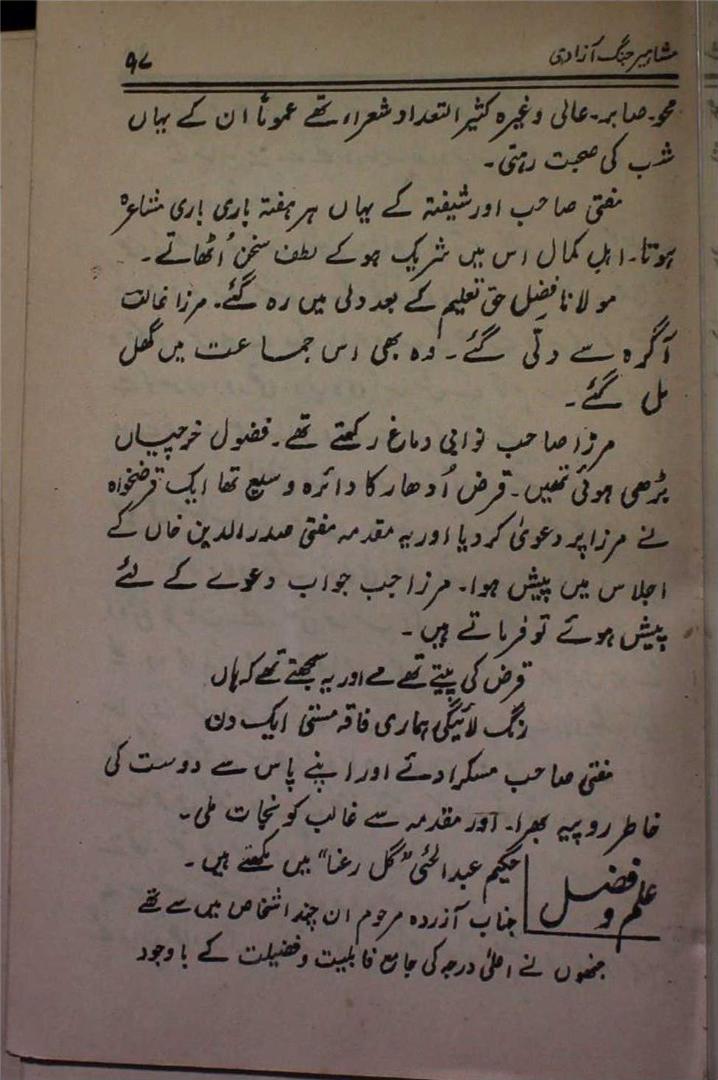 مشاہیر جنگ آزادی
۹۷
محو۔ صابر۔ عالی وغیرہ کثیر التعداد شعراء تھے عموماً ان کے یہاں
شب کی صحبت رہتی۔
مفتی صاحب اور شیفتہ کے یہاں ہر ہفتہ باری باری مشاعرہ
ہوتا۔ اہلِ کمال اس میں شریک ہو کے لطف سخن اُٹھاتے۔
مولانا فضل حق تعلیم کے بعد دلی میں رہ گئے۔ مرزا غالب
آگرہ سے دلّی گئے۔ وہ بھی اس جماعت میں گھل
مل گئے۔
مرزا صاحب نوابی دماغ رکھتے تھے۔ فضول خرچیاں
بڑھی ہوئی تھیں۔ قرض اُدھار کا دائرہ وسیع تھا ایک قرضخواہ
نے مرزا پر دعویٰ کر دیا اور یہ مقدمہ مفتی صدر الدین خاں کے
اجلاس میں پیش ہوا۔ مرزا جب جواب دعوے کے لئے
پیش ہوئے تو فرماتے ہیں۔
قرض کی پیتے تھے مے اور یہ سمجھتے تھے کہ ہاں
رنگ لائیگی ہماری فاقہ مستی ایک دن
مفتی صاحب مسکرا دئے اور اپنے پاس سے دوست کی
خاطر روپیہ بھرا۔ اور مقدمہ سے غالب کو نجات ملی۔
علم و فضل
حکیم عبدالحئی "گل رعنا" میں لکھتے ہیں۔
جناب آزردہ مرحوم ان چند اشخاص میں سے تھے
جنھوں نے اعلیٰ درجہ کی جامع قابلیت و فضیلت کے باوجود